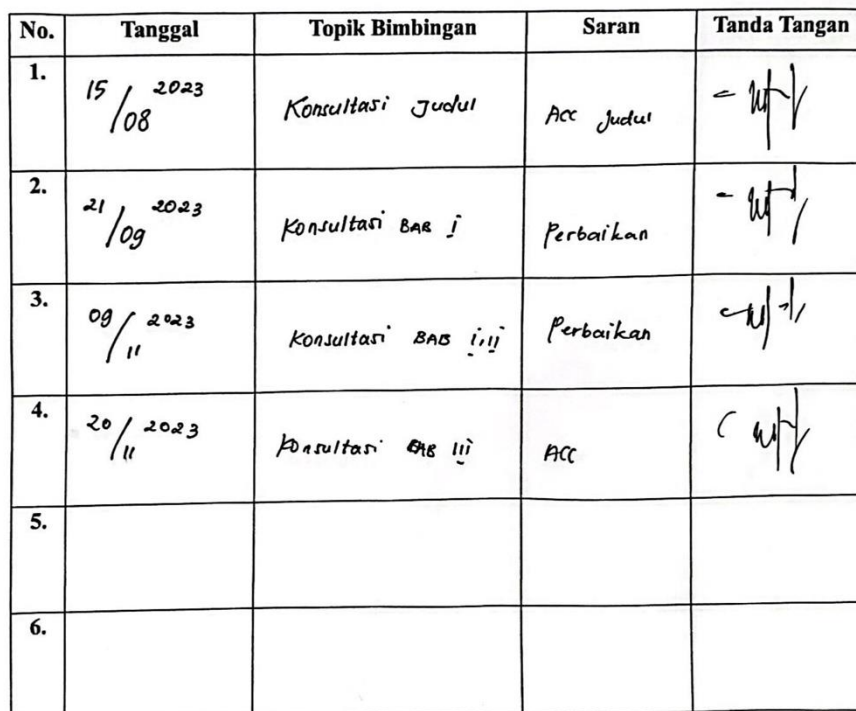 No. Tanggal Topik Bimbingan Saran Tanda Tangan
1. 15/08 2023 Konsultasi Judul ACC Judul
2. 21/09 2023 Konsultasi BAB I Perbaikan
3. 09/11 2023 Konsultasi BAB I,II Perbaikan
4. 20/11 2023 Konsultasi BAB III ACC
5.
6.